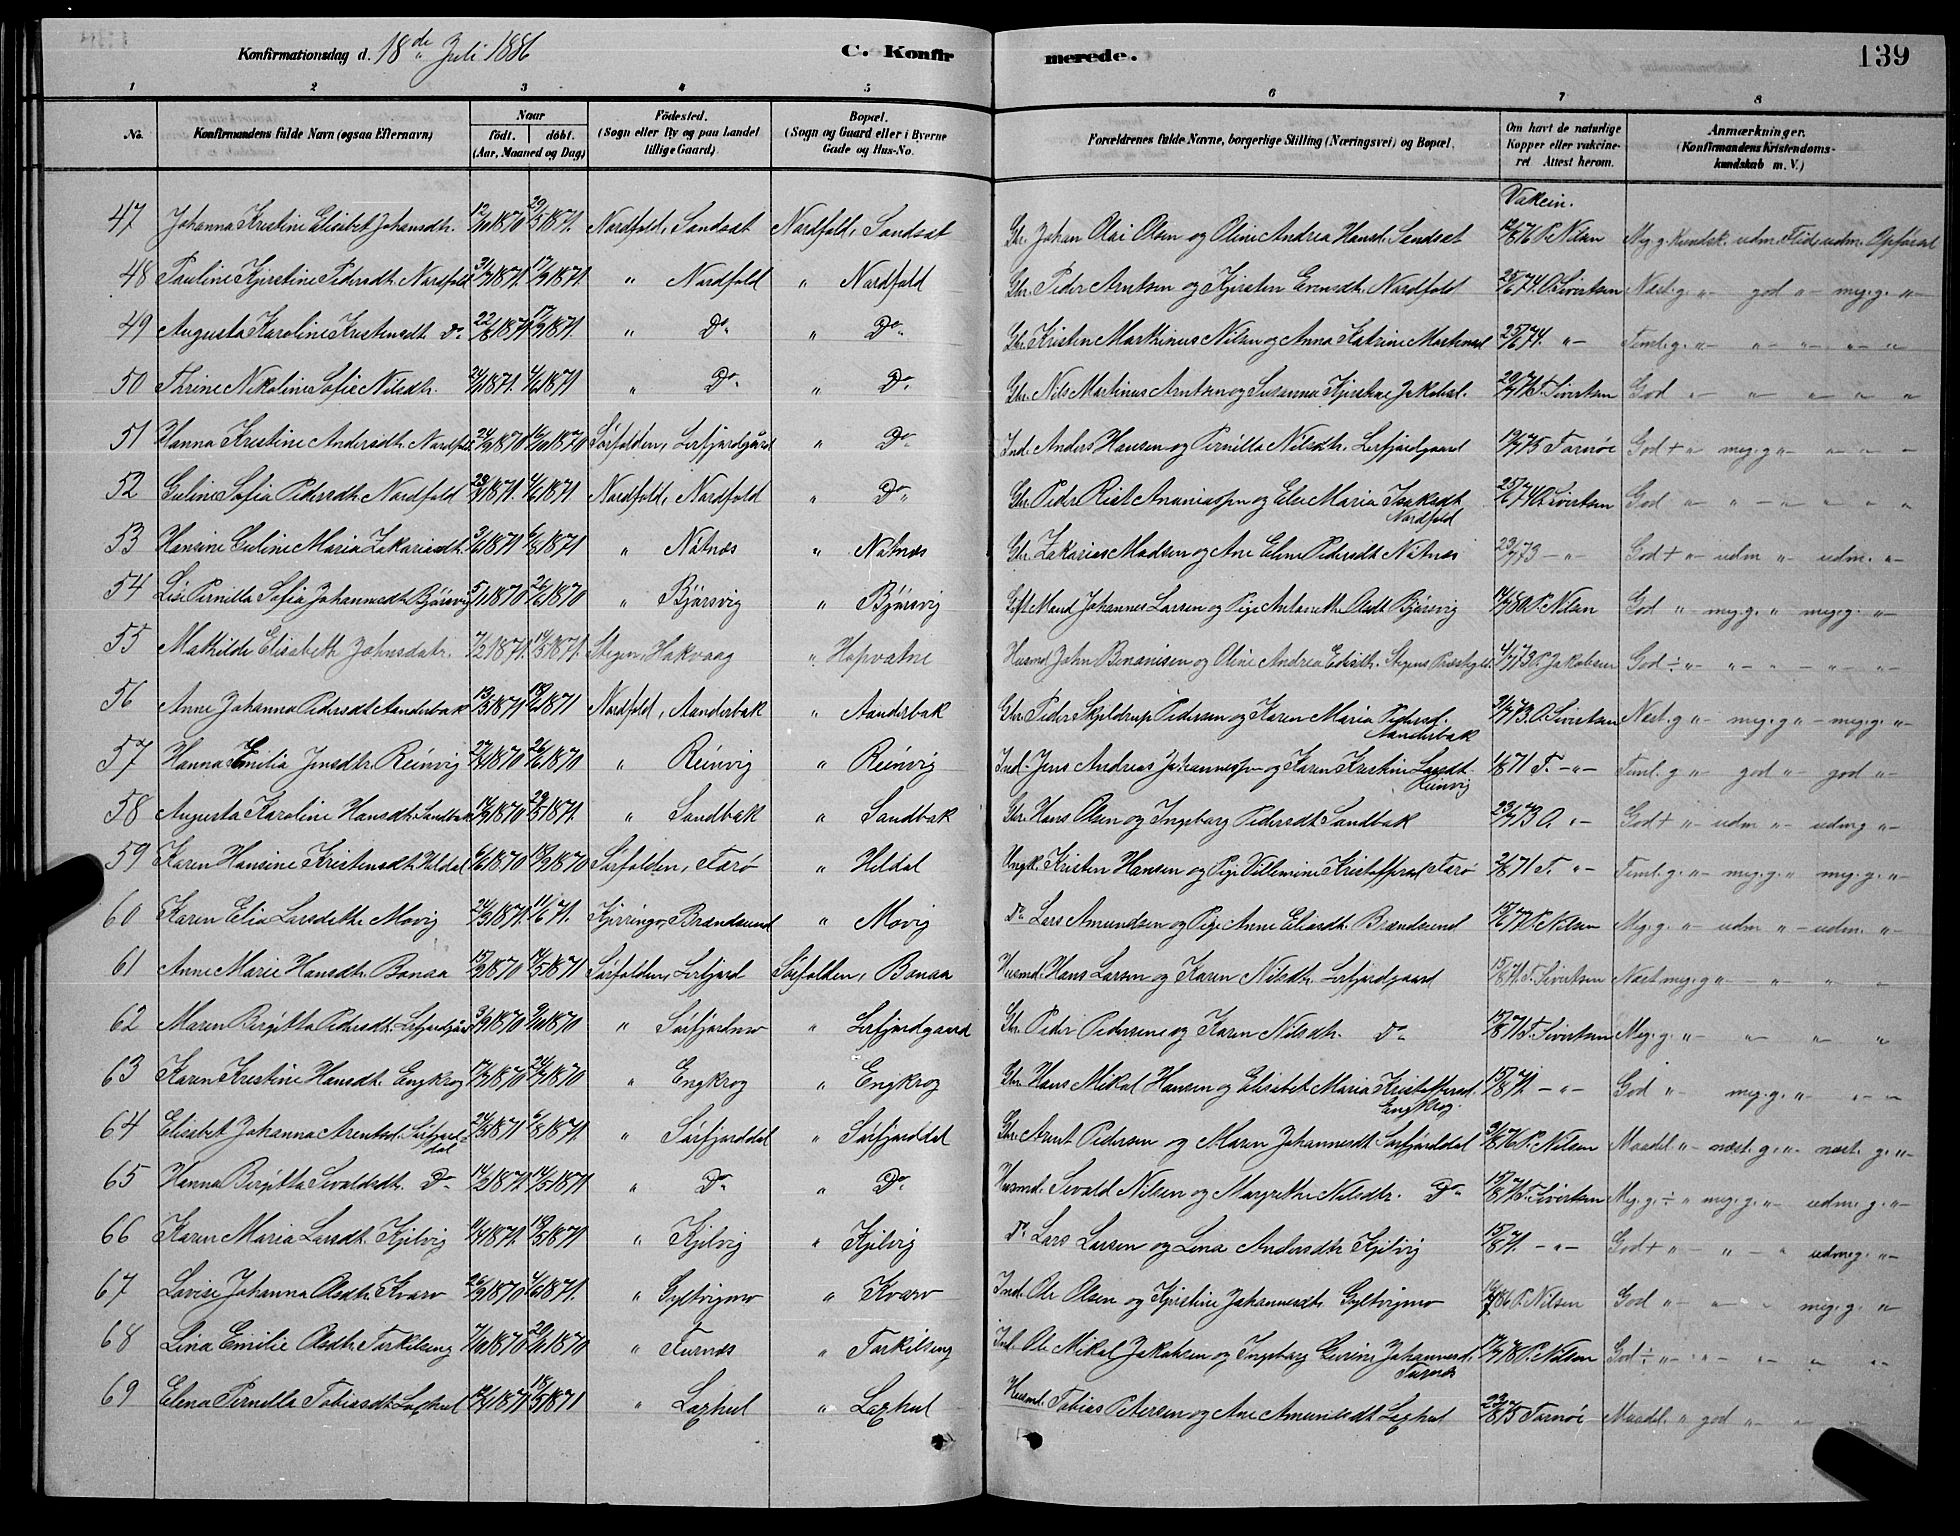 Konfirmationsdag d. 18de Juli 1886 C. Konfirmerede. 139
1 2 3 4 5 6 7 8
No. Konfirmandens fulde Navn (ogsaa Efternavn) Naar født. døbt. (Aar, Maaned og Dag) Fødested. (Sogn eller By og paa Landet tillige Gaard) Bopæl. (Sogn og Gaard eller i Byerne Gade og Hus-No. Forældrenes fulde Navne, borgerlige Stilling (Næringsvei) og Bopæl. Om havt de naturlige Kopper eller vakcineret Attest herom. Anmærkninger. (Konfirmandens Kristendomskundskab m. V.)
Vakcin.
47 Johanna Kristine Elisabet Johansdtr. 12/10 1870 29/5 1871. Nordfold, Sandset Nordfold, Sandset Gbr. Johan Olai Olsen og Oline Andrea Hansd. Sandset P. Nilsen Meg. g. Kundsk. udm. Flid udm. Opførsel
48 Pauline Kjerstine Pedersdtr. Nordfold 1871. 17/9 1871. " Nordfold " Nordfold Gbr. Peder Arntsen og Kjersten Evensdtr. Nordfold 25/6 74. O. Sivertsen Næst. g. " god " meg. g. "
49 Augusta Karoline Kristensdtr. Do. 22/8 1871. 17/9 1871. " Do. " Do. Gbr. Kristen Martinus Nilsen og Anna Katrine Martinsd. 25/6 74. " Teml. g. " " " " "
50 Thrine Nikoline Sofie Nilsdtr. 1871. 4/6 1871 " Do. " Do. Gbr. Nils Martinus Arntsen og Susanna Kjerstine Jakobsd. T. Sivertsen God " " " " "
51 Hanna Kristine Andersdtr. Nordfold 24/9 1870 16/10 1870 Sørfolden, Lerfjordgård " Do. Ind. Anders Hansen og Pernille Nilsdtr. Lerfjordgaard 75 Tornøe God + " meg. g " " "
52 Guline Sofia Pedersdtr. Nordfold 1871. 4/6 1871 Nordfold, Nordfold " Do. Gbr. Peder Rist Ananiassen og Else Maria Isaksdtr. Nordfold 25/6 74 O. Sivertsen God " " " " "
53 Hansine Guline Maria Zakariasdtr. 1871 1871 " Nøtnæs " Nøtnes Gbr. Zakarias Madsen og Ane Eline Pedersdtr. Nøtnæs 73 " God + " udm " udm. "
54 Lise Pernilla Sofia Johannesdtr. Bjørsvig 5/1 1870 26/5 1870 " Bjørsvig " Bjørsvig Gift Mand Johannes Larsen og Pige Antonette Olsdt. Bjørsvig 80 P. Nilsen God " meg. g. " meg. g. "
55 Mathilde Elisabeth Johnsdatr. 7/2 1871. 14/5 1871. Stegen, Hakvaag " Hopvatne Husmd. John Benonisen og Oline Andrea Edisdtr. Stegens Præstegjld. 73 P. Jakobsen God ÷ " " " "
56 Anne Johanna Pedersdt. Aanderbak 13/3 1871 18/6 1871 Nordfold, Aanderbak " Aanderbak Gbr. Peder Skjeldrup Pedersen og Karen Maria Pedersd. Aanderbak 73. O. Sivertsen Næst. g " meg. g " meg. g. "
57 Hanna Emilia Jensdtr. Reinvig 1870 26/6 1870 " Reinvig " Reinvig Ind. Jens Andreas Johannessen og Karen Kristine Larsdt. Reinvig 71 T. " Teml. g " god " god "
58 Augusta Karoline Hansdt. Sandbak 1870 29/5 1871. " Sandbak " Sandbak Gbr. Hans Olsen og Ingeborg Pedersdt. Sandbak 73 O. " God + " udm " udmg "
59 Karen Hansine Kristensdt. Heldal 1870 1870 Sørfolden, Tarø " Heldal Ungk. Kristen Hansen og Pige Villemine Kristoffersd. Tarø 71 T. " Teml. g. " meg. g. " meg. g. "
60 Karen Elia Larsdtr. Movig 1871. 11/6 71. Kjerringø, Brændsund " Movig Do Lars Amundsen og Pige Anne Eliasdt. Brændsund P. Nilsen Meg. g. " udm " udm. "
61 Anne Marie Hansdt. Bonaa 1870 14/5 1871 Sørfolden, Lerfjord Sørfolden, Bonaa Husmd. Hans Larsen og Karen Nilsdtr. Lerfjordgaard 15/8 71. T. Sivertsen Næst meg. g " " " "
62 Maren Birgitta Pedersdt. Lerfjordgård 3/9 1870 9/10 1870 " Sørfjordmo " Lerfjordgaard Gbr. Peder Pedersens og Karen Nilsdtr. Do. 15/8 71 T. Sivertsen Meg. g. " " " "
63 Karen Kristine Hansdt. Engkrog 1870 24/7 1870 " Engkrog " Engkrog Gbr. Hans Mikal Hansen og Elisabet Maria Kristoffersd. Engkrog. 15/8 71. " God " meg. g. " "
64 Elisabet Johanna Arentsd. Sørfjorddal 24/3 1871 6/8 1871. " Sørfjorddal " Sørfjorddal Gbr. Arnt Pedersen og Maren Johannesdt. Sørfjorddal 76 P. Nilsen Maadel. " næst. g. " næst. g. "
65 Hanna Birgitta Sivaldsdt. Do. 14/2 1871. 14/5 1871 " Do. " Do. Husmd. Sivald Nilsen og Margrethe Nilsdtr. Do. 15/8 71 T. Sivertsen Meg. g. ÷ " meg. g. " udm. g. "
66 Karen Maria Larsdt. Kjelvig 1871. 1871 " Kjelvig " Kjelvig Do Lars Larsen og Lina Andersdtr. Kjelvig 15/8 71. " God + " " " udmg. "
67 Lovise Johanna Olsdt. Kvarv 26/9 1870 4/6 1871. " Gyltvigmo " Kvarv Ind. Ole Olsen og Kjerstine Johannesdt. Gyltvigmo 86 P. Nilsen God " " " meg. g. "
68 Lina Emilie Olsdt. Torkilseng 1870 1870 " Furnes " Torkilseng Ind. Ole Mikal Jakobsen og Ingeborg Gurine Johannesd. Furnes 78 P. Nilsen God ÷ " " " "
69 Elena Pernella Tobiasdt. Laxhul 1871 18/5 1871 " Laxhul " Laxhul Husmd. Tobias Petersen og Ane Amundsdt. Laxhul 75 Tornøe Maadel. " god " "